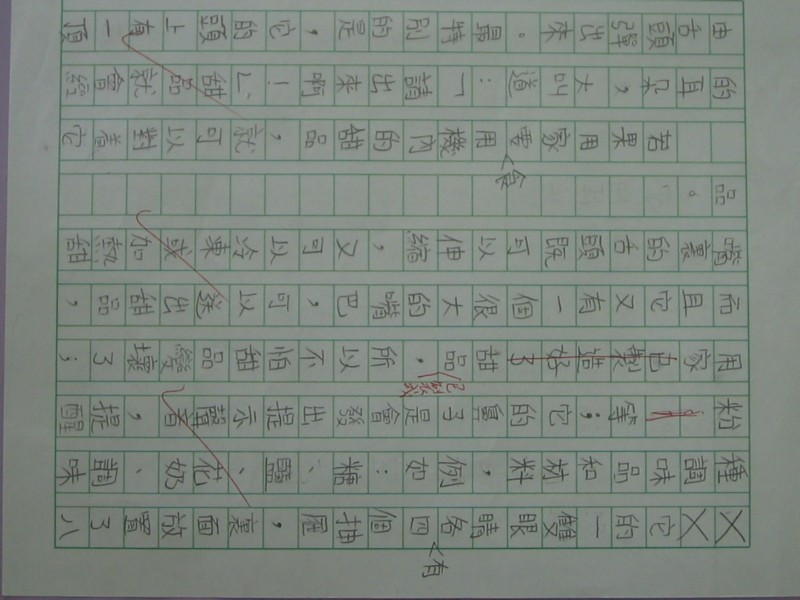 它的一雙眼睛各有四個抽屜,裏面放置了八
種調味品和材料,例如:糖、鹽、花奶、調味
粉等;它的鼻子是會發出提示聲音,提醒
用家已製造好了甜品已製成,所以不怕甜品變壞了;
而且它又有一個很大的嘴巴,可以送出甜品,
嘴裏的舌頭既可以伸縮,又可以冷凍或加熱甜
品。
若果用家要食用機內的甜品,就可以對着它
的耳朵,大叫道:「請出來啊!」甜品就會經
由舌頭彈出來。最特別的是,它的頭上有一頂